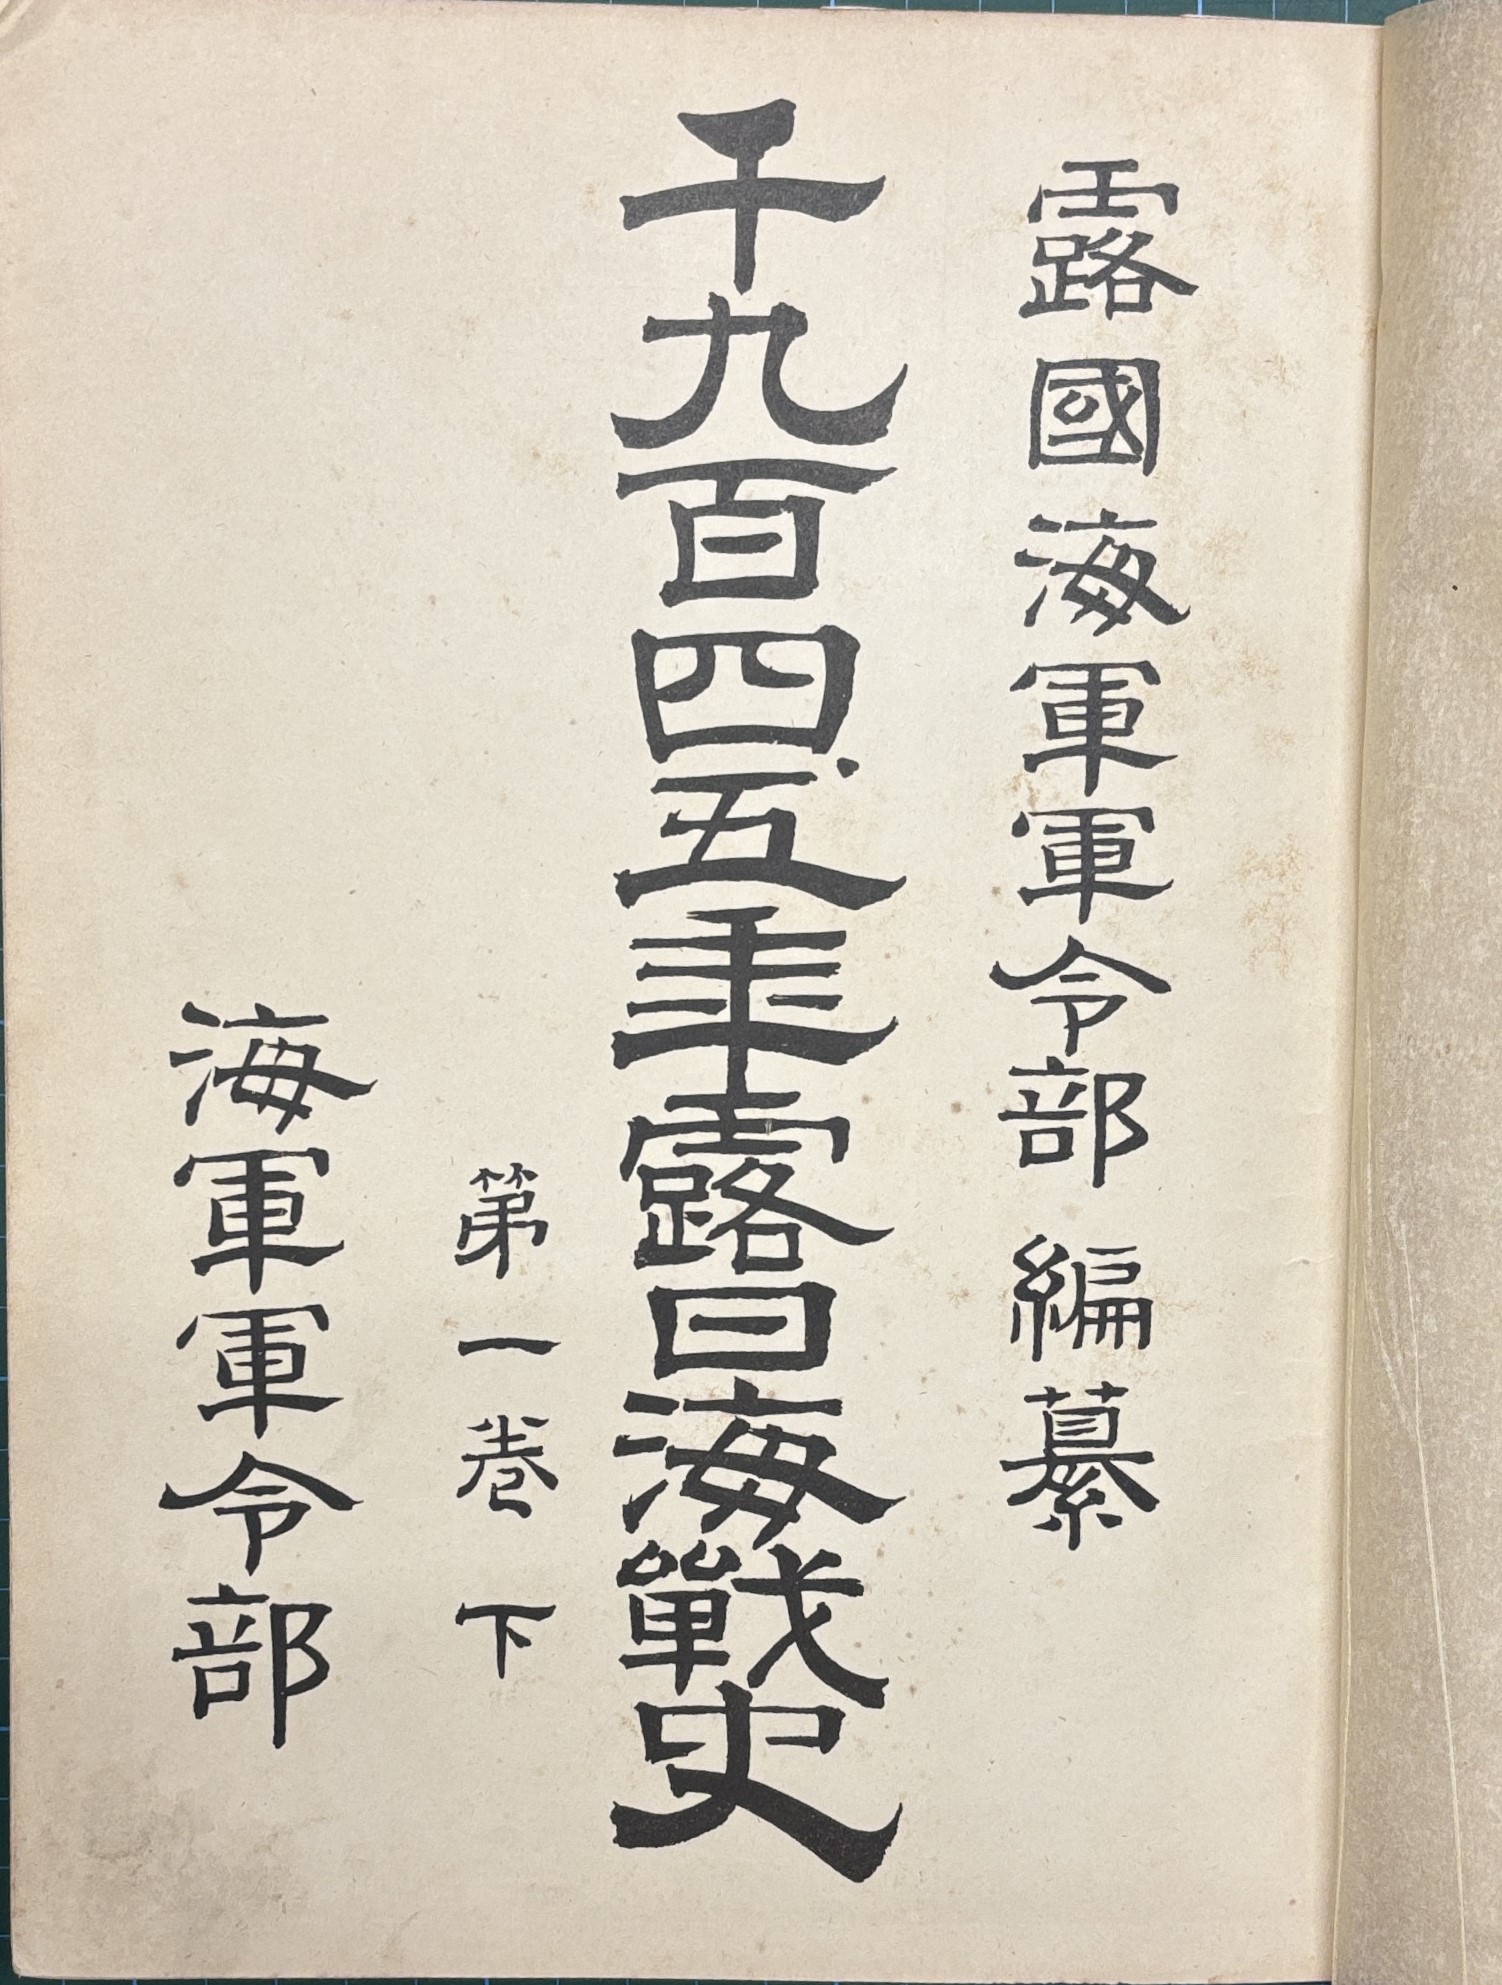 露國海軍軍令部 編纂
千九百四、五年露日海戰史
第一卷 下
海軍軍令部